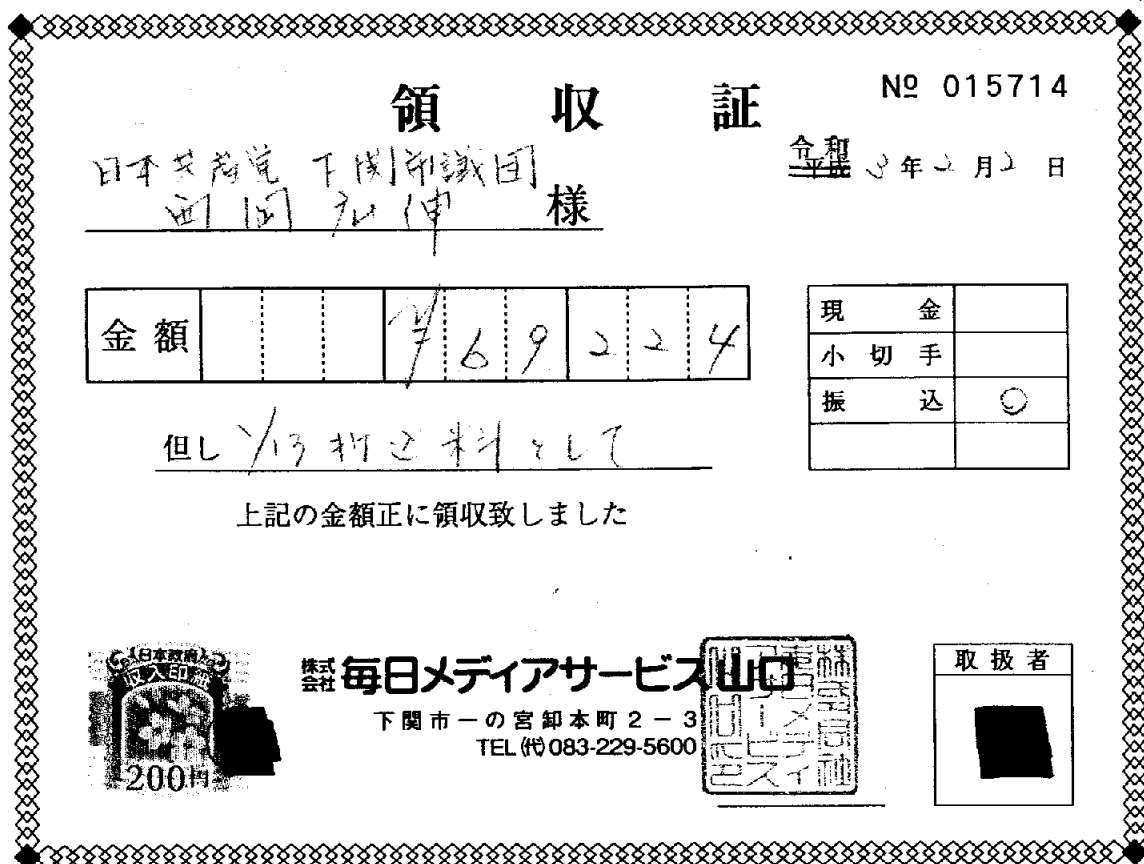 領収証
№ 015714
令和
平成 3年2月2日
日本共産党 下関市議団
西岡広伸 様
金額 ¥69224
現金
小切手
振込 ○
但し 1/13 折込料として
上記の金額正に領収致しました
日本政府
収入印紙
200円
株式会社 毎日メディアサービス山口
下関市一の宮卸本町2-3
TEL(代)083-229-5600
取扱者